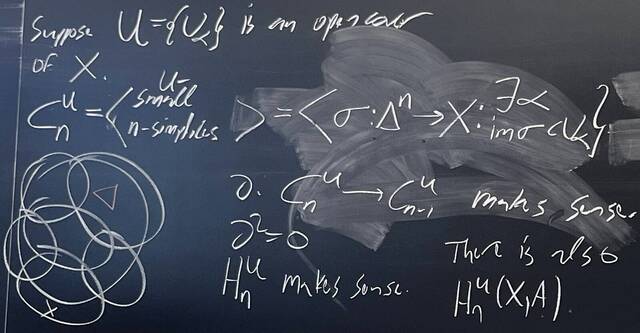 Suppose U={U_α} is an open cover
of X.
C_n^U = < U-small n-simplices > = < σ:Δ^n → X: ∃α im σ ⊂ U_α }
∂: C_n^U → C_{n-1}^U makes sense.
∂²=0
H_n^U makes sense.
There is also
H_n^U(X,A)
X